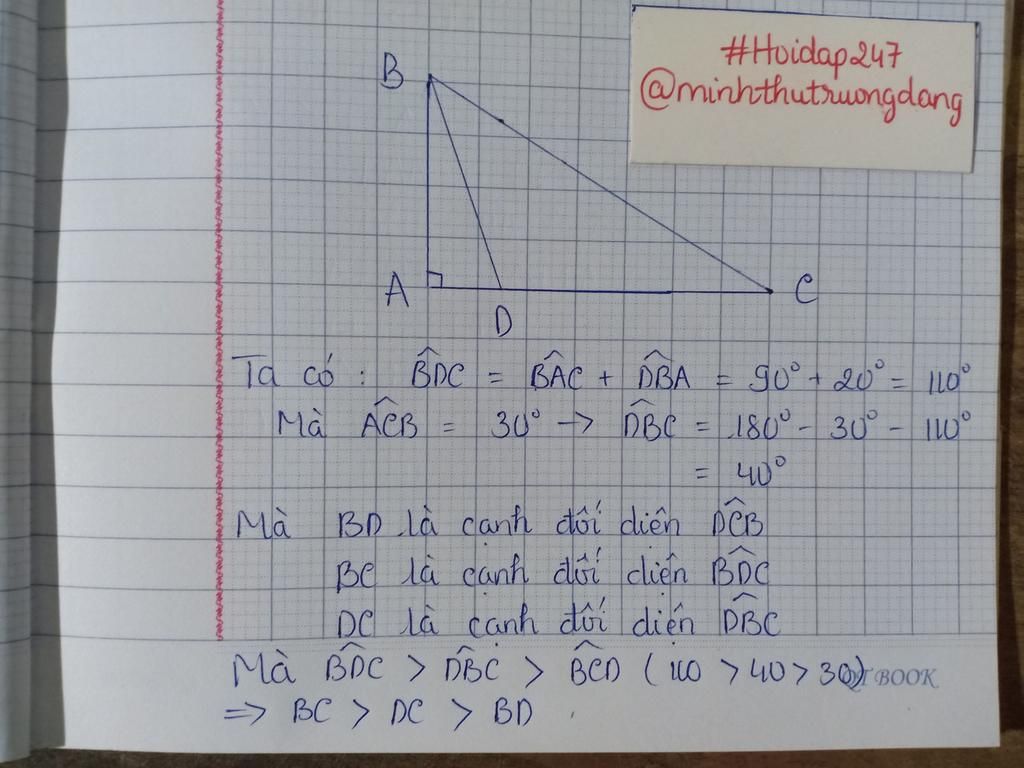 #Hoidap247
@minhthutruongdang
B
A
D
C
Ta có : B̂DC = B̂AC + D̂BA = 90° + 20° = 110°
Mà ÂCB = 30° → D̂BC = 180° - 30° - 110°
= 40°
Mà BD là cạnh đối diện D̂CB
BC là cạnh đối diện B̂DC
DC là cạnh đối diện D̂BC
Mà B̂DC > D̂BC > B̂CD ( 110 > 40 > 30)
BOOK
=> BC > DC > BD